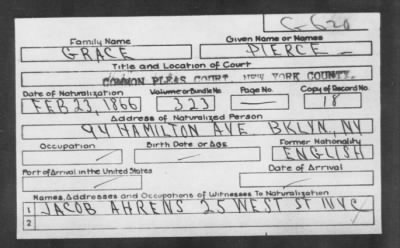 C-620
Family Name Given Name or Names
GRACE PIERCE
Title and Location of Court
COMMON PLEAS COURT, NEW YORK COUNTY.
Date of Naturalization Volume or Bundle No. Page No. Copy of Record No.
FEB 23, 1866 323 — 18
Address of Naturalized Person
94 HAMILTON AVE BKLYN, NY
Occupation Birth Date or Age Former Nationality
ENGLISH
Port of Arrival in the United States Date of Arrival
Names, Addresses and Occupations of Witnesses To Naturalization
1 JACOB AHRENS 25 WEST ST NYC
2